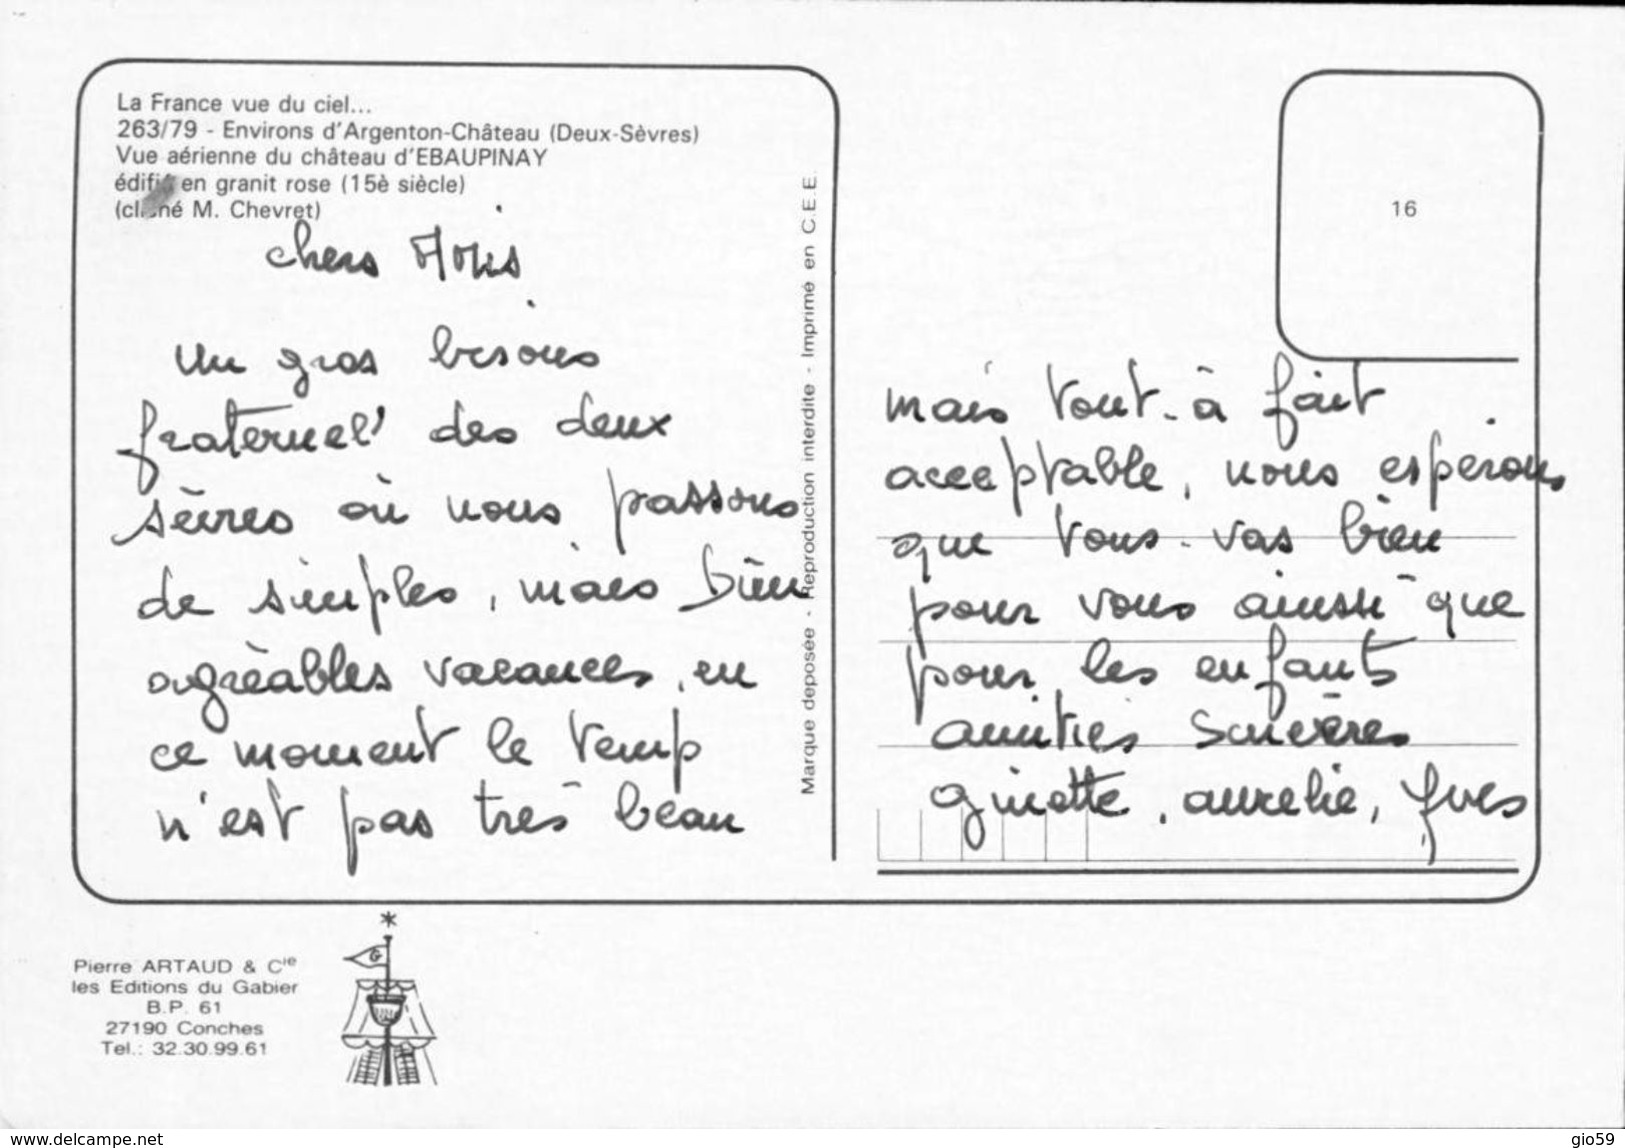 La France vue du ciel...
263/79 - Environs d'Argenton-Château (Deux-Sèvres)
Vue aérienne du château d'EBAUPINAY
édifié en granit rose (15è siècle)
(cliché M. Chevret)
chers Amis
un gros bisous
fraternel' des deux
sèvres où nous passons
de simples, mais bien
agrèables vacances, en
ce moment le temp
n'est pas très beau
Marque deposée - Reproduction interdite - Imprimé en C.E.E.
16
mais tout-à fait
acceptable, nous espérons
que tous vas bien
pour vous ainssi que
pour les enfants
amitiés sincères
ginette, aurelie, Yves
Pierre ARTAUD & Cie
les Editions du Gabier
B.P. 61
27190 Conches
Tel.: 32.30.99.61
G
www.delcampe.net
gio59